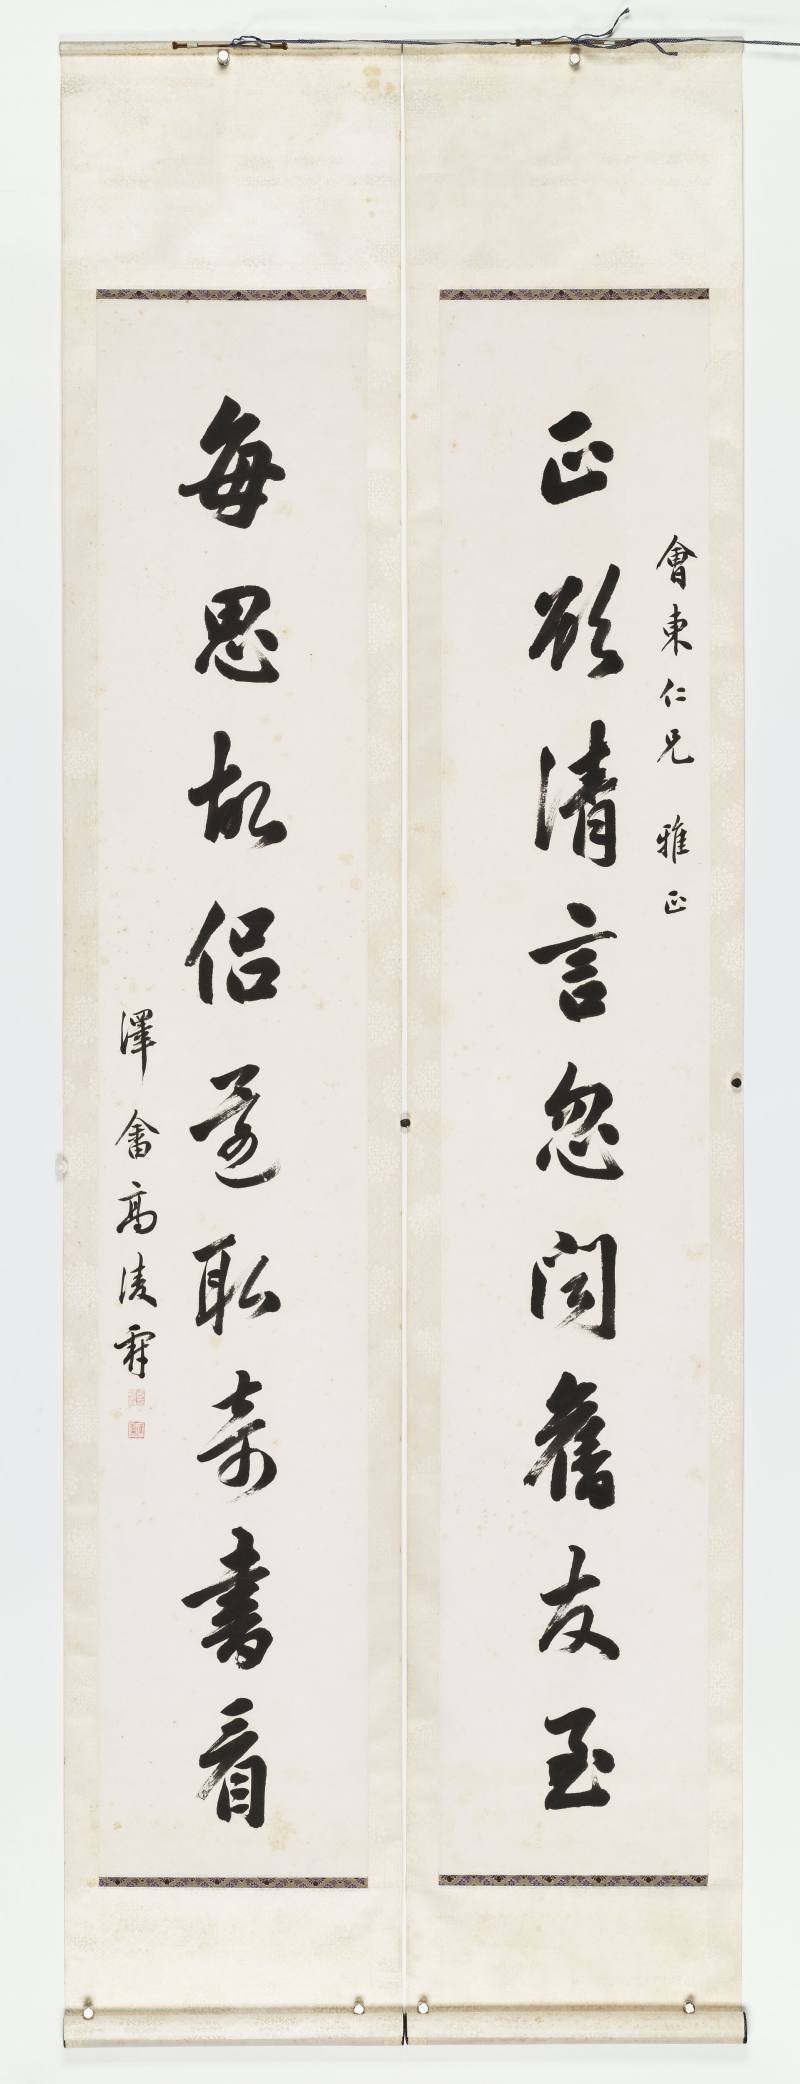 會東仁兄 雅正
正欲清言忽聞舊友至
每思故侶還取奇書看
澤畬高淩霨